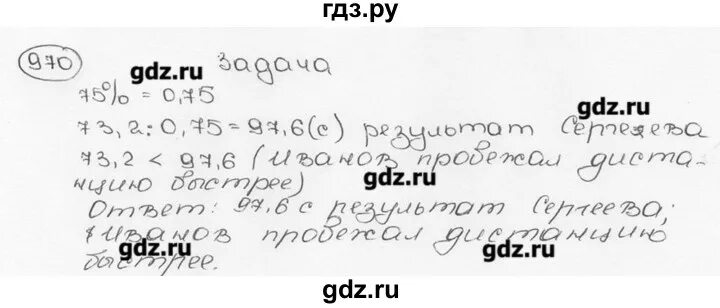 гдз.ру
970 Задача
gdz.ru
75% = 0,75
gdz.ru
73,2 : 0,75 = 97,6 (с) результат Сергеева
73,2 < 97,6 (Иванов пробежал диста-
gdz.ru
нцию быстрее)
Ответ: 97,6 с результат Сергеева;
Иванов пробежал дистанцию
gdz.ru
gdz.ru
быстрее.
gdz.ru